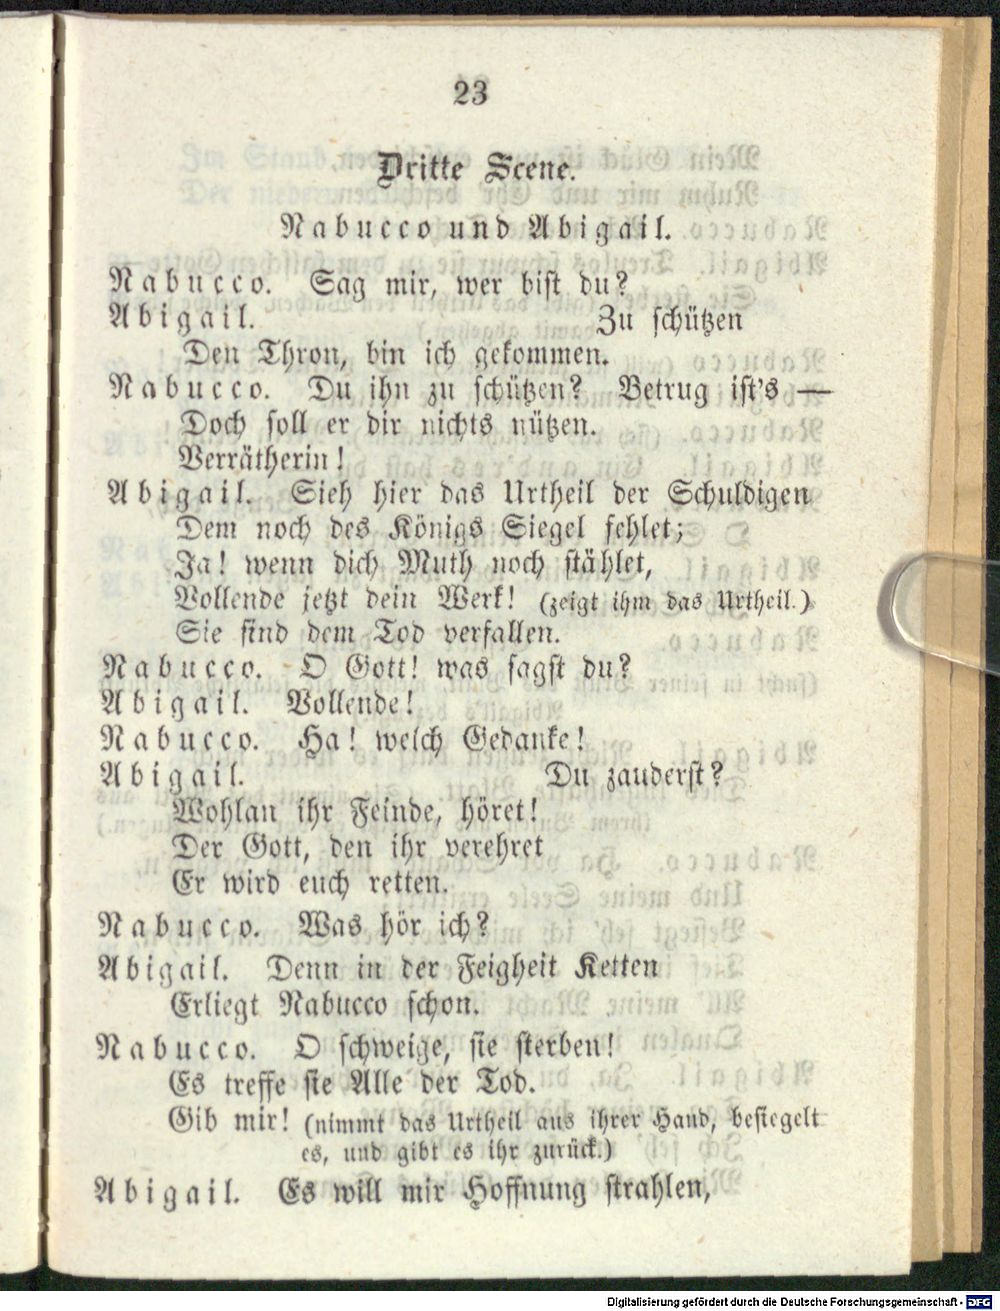 23
Dritte Scene.
Nabucco und Abigail.
Nabucco. Sag mir, wer bist du?
Abigail. Zu schützen
Den Thron, bin ich gekommen.
Nabucco. Du ihn zu schützen? Betrug ist's —
Doch soll er dir nichts nützen.
Verrätherin!
Abigail. Sieh hier das Urtheil der Schuldigen
Dem noch des Königs Siegel fehlet;
Ja! wenn dich Muth noch stählet,
Vollende jetzt dein Werk! (zeigt ihm das Urtheil.)
Sie sind dem Tod verfallen.
Nabucco. O Gott! was sagst du?
Abigail. Vollende!
Nabucco. Ha! welch Gedanke!
Abigail. Du zauderst?
Wohlan ihr Feinde, höret!
Der Gott, den ihr verehret
Er wird euch retten.
Nabucco. Was hör ich?
Abigail. Denn in der Feigheit Ketten
Erliegt Nabucco schon.
Nabucco. O schweige, sie sterben!
Es treffe sie Alle der Tod.
Gib mir! (nimmt das Urtheil aus ihrer Hand, besiegelt
es, und gibt es ihr zurück.)
Abigail. Es will mir Hoffnung strahlen,
Digitalisierung gefördert durch die Deutsche Forschungsgemeinschaft - DFG